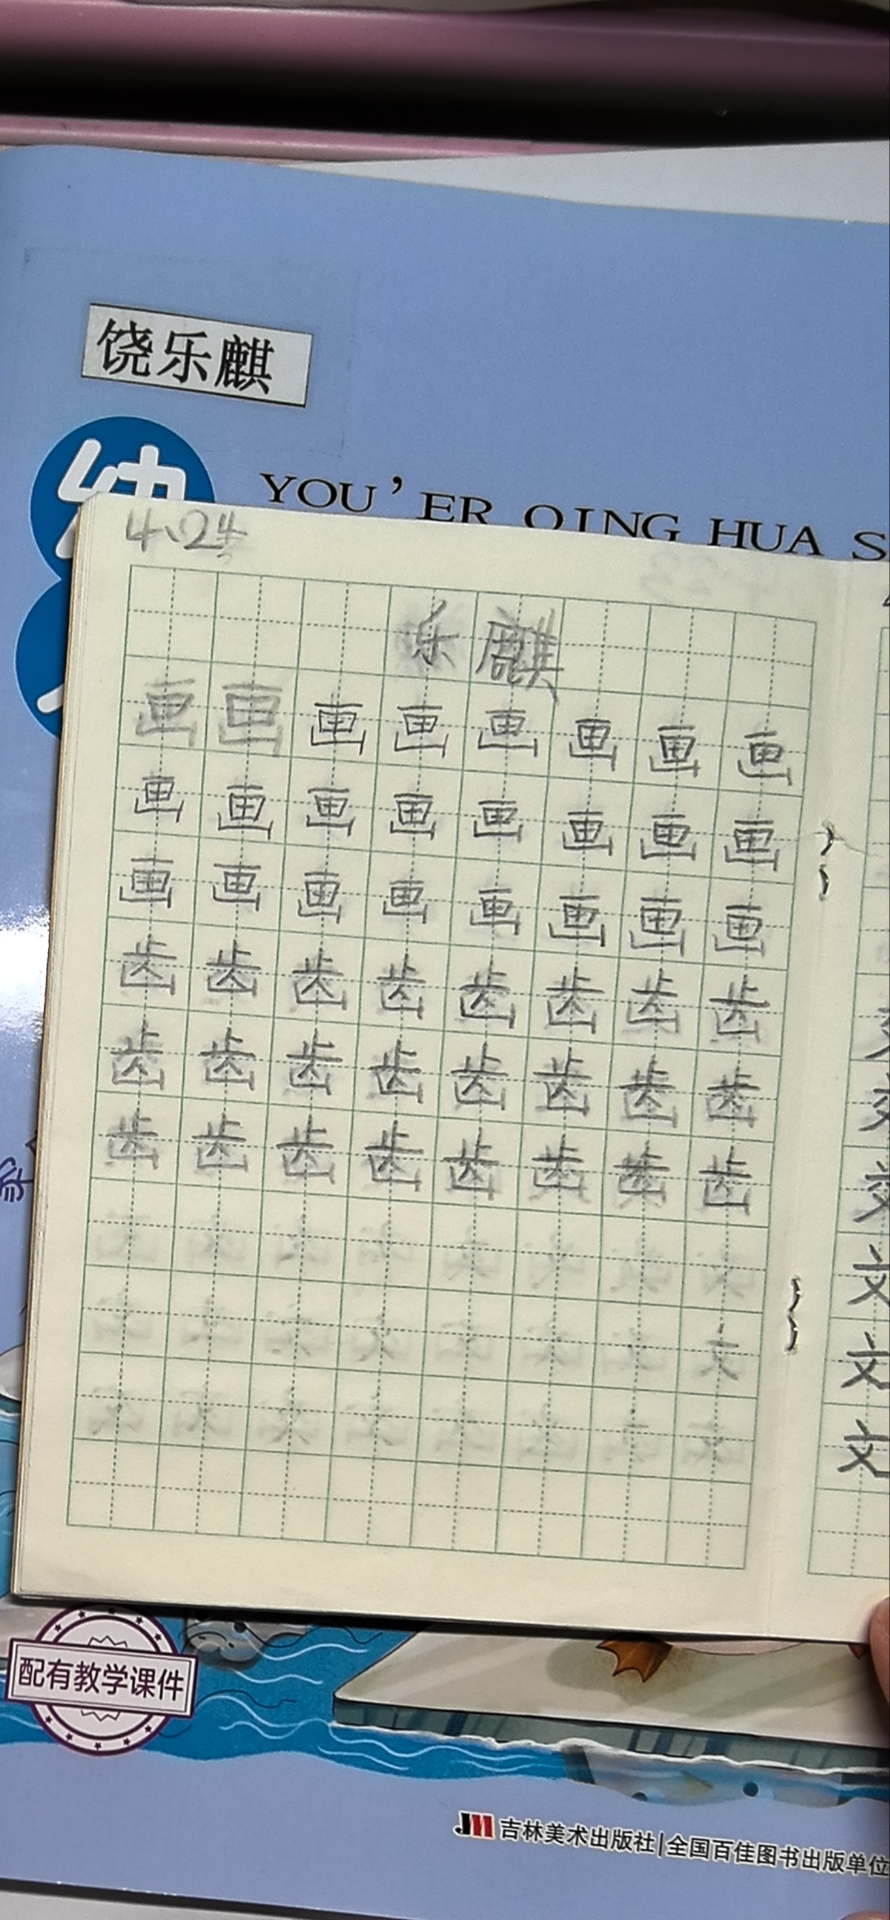 饶乐麒
幼
YOU'ER QING HUA S
4、24
乐麒
画画画画画画画画
画画画画画画画画
画画画画画画画画
齿齿齿齿齿齿齿齿
齿齿齿齿齿齿齿齿
齿齿齿齿齿齿齿齿
文
文
文
配有教学课件
吉林美术出版社|全国百佳图书出版单位